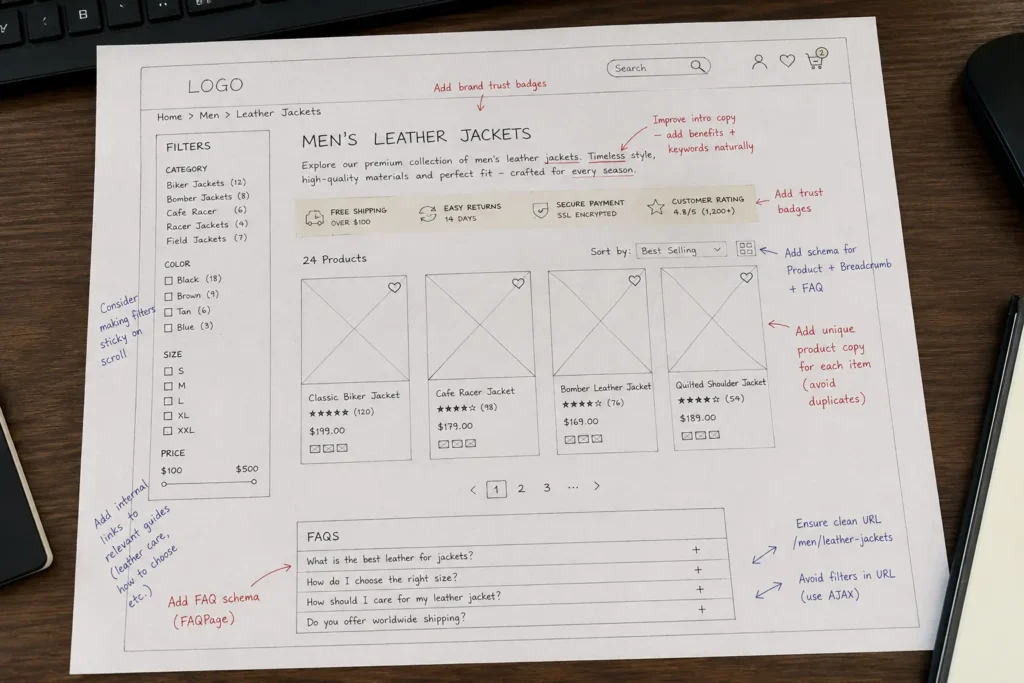 B
LOGO
Search
2
Add brand trust badges
Home > Men > Leather Jackets
MEN'S LEATHER JACKETS
Explore our premium collection of men's leather jackets. Timeless style,
high-quality materials and perfect fit – crafted for every season.
Improve intro copy
– add benefits +
keywords naturally
FREE SHIPPING
OVER $100
EASY RETURNS
14 DAYS
SECURE PAYMENT
SSL ENCRYPTED
CUSTOMER RATING
4.8/5 (1,200+)
Add trust
badges
FILTERS
CATEGORY
Biker Jackets (12)
Bomber Jackets (8)
Cafe Racer (6)
Racer Jackets (4)
Field Jackets (7)
COLOR
Black (18)
Brown (9)
Tan (6)
Blue (3)
SIZE
S
M
L
XL
XXL
PRICE
$100 $500
Consider
making filters
sticky on
scroll
Add internal
links to
relevant guides
(leather care,
how to choose
etc.)
24 Products
Sort by: Best Selling
Add schema for
Product + Breadcrumb
+ FAQ
Classic Biker Jacket
★★★★★ (120)
$199.00
Cafe Racer Jacket
★★★★☆ (98)
$179.00
Bomber Leather Jacket
★★★★☆ (76)
$169.00
Quilted Shoulder Jacket
★★★★☆ (54)
$189.00
Add unique
product copy
for each item
(avoid
duplicates)
< 1 2 3 ... >
FAQS
What is the best leather for jackets? +
How do I choose the right size? +
How should I care for my leather jacket? +
Do you offer worldwide shipping? +
Add FAQ schema
(FAQPage)
Ensure clean URL
/men/leather-jackets
Avoid filters in URL
(use AJAX)